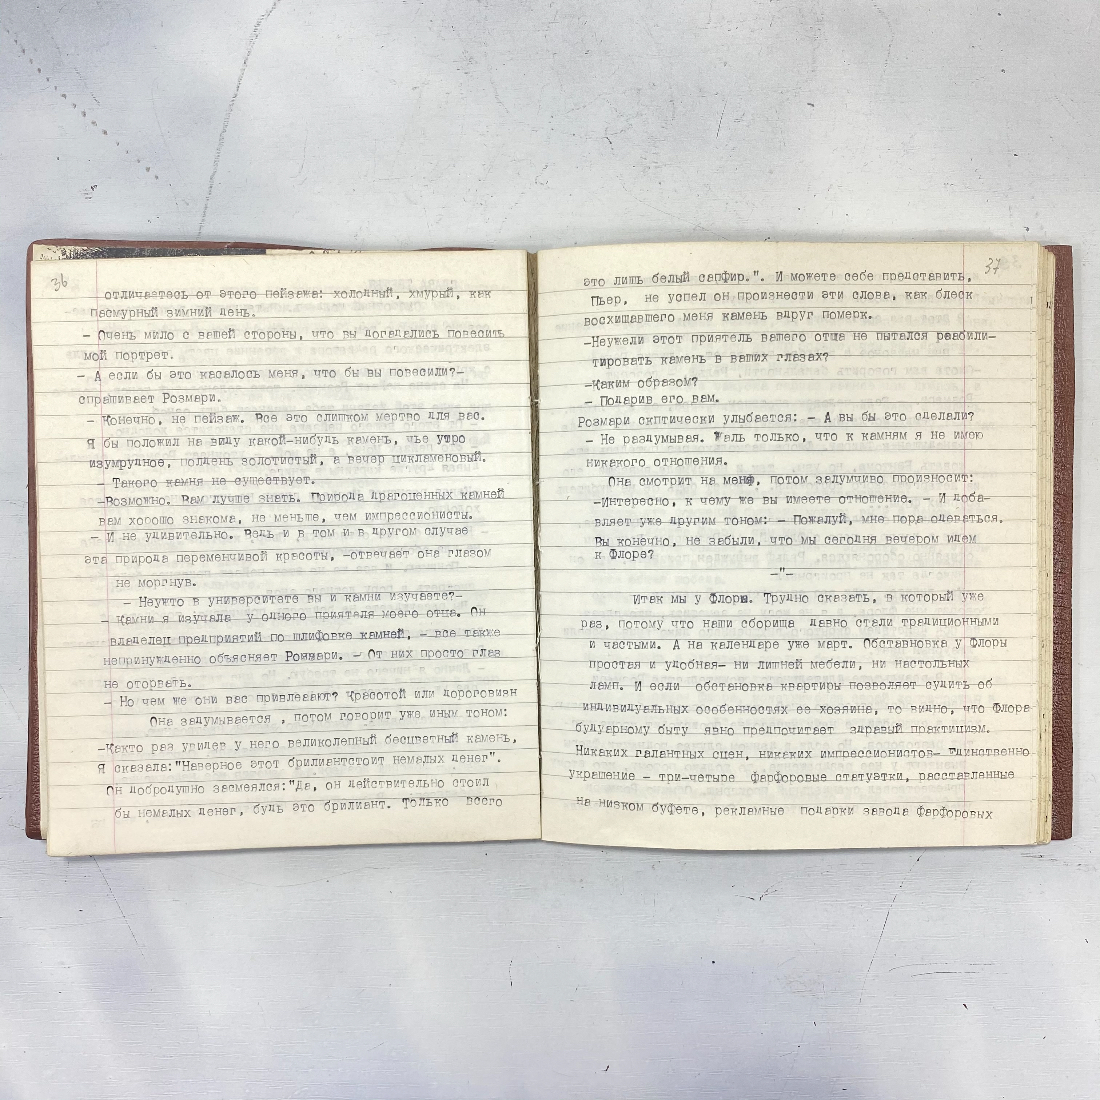 36
отличаетесь от этого пейзажа: холодный, хмурый, как
пасмурный зимний день.
- Очень мило с вашей стороны, что вы догадались повесить
мой портрет.
- А если бы это касалось меня, что бы вы повесили?-
спрашивает Розмари.
- Конечно, не пейзаж. Все это слишком мертво для вас.
Я бы положил на виду какой-нибудь камень, чье утро
изумрудное, полдень золотистый, а вечер цикламеновый.
- Такого камня не существует.
-Возможно. Вам лучше знать. Природа драгоценных камней
вам хорошо знакома, не меньше, чем импрессионисты.
- И не удивительно. Ведь и в том и в другом случае -
эта природа переменчивой красоты, -отвечает она глазом
не моргнув.
- Неужто в университете вы и камни изучаете?-
- Камни я изучала у одного приятеля моего отца. Он
владелец предприятий по шлифовке камней, - все также
непринужденно объясняет Розмари. - От них просто глаз
не оторвать.
- Но чем же они вас привлекают? Красотой или дороговизн
Она задумывается , потом говорит уже иным тоном:
-Както раз увидев у него великолепный бесцветный камень,
Я сказала:"Наверное этот брилиантстоит немалых денег".
Он добродушно засмеялся:"Да, он действительно стоил
бы немалых денег, будь это брилиант. Только всего
37
это лишь белый сапфир.". И можете себе представить,
Пьер, не успел он произнести эти слова, как блеск
восхищавшего меня камень вдруг померк.
-Неужели этот приятель вашего отца не пытался реабили-
тировать камень в ваших глазах?
-Каким образом?
- Подарив его вам.
Розмари скптически улыбается: - А вы бы это сделали?
- Не раздумывая. Жаль только, что к камням я не имею
никакого отношения.
Она смотрит на меня, потом задумчиво произносит:
-Интересно, к чему же вы имеете отношение. - И доба-
вляет уже другим тоном: - Пожалуй, мне пора одеваться.
Вы конечно, не забыли, что мы сегодня вечером идем
к Флоре?
-"-
Итак мы у Флоры. Трудно сказать, в который уже
раз, потому что наши сборища давно стали традиционными
и частыми. А на календаре уже март. Обставновка у Флоры
простая и удобная- ни лишней мебели, ни настольных
ламп. И если обстановка квартиры позволяет судить об
индивидуальных особенностях ее хозяина, то видно, что Флора
будуарному быту явно предпочитает здравый практицизм.
Никаких галантных сцен, никаких импрессионистов- Единственно
украшение - три-четыре фарфоровые статуэтки, расставленные
на низком буфете, рекламные подарки завода Фарфоровых